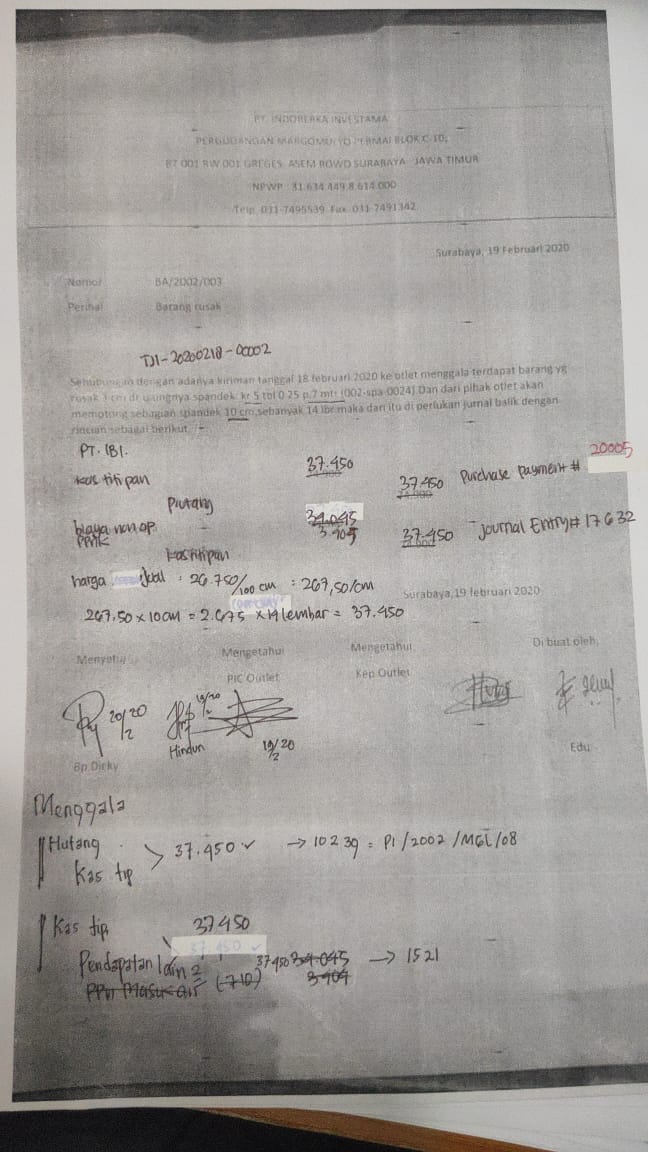 PT. INDOBERKA INVESTAMA
PERGUDANGAN MARGOMULYO PERMAI BLOK C-10,
RT 001 RW 001 GREGES ASEM ROWO SURABAYA JAWA TIMUR
NPWP : 31.634.449.8.614.000
Telp. 031-7495539 Fax. 031-7491342
Surabaya, 19 Februari 2020
Nomor BA/2002/003
Perihal Barang rusak
TJ1-20200218-00002
Sehubungan dengan adanya kiriman tanggal 18 februari 2020 ke otlet menggala terdapat barang yg
rusak 3 cm di ujungnya spandek kr 5 tbl 0.25 p.7 mtr (002-spa-0024). Dan dari pihak otlet akan
memotong sebagian spandek 10 cm,sebanyak 14 lbr.maka dari itu di perlukan jurnal balik dengan
rincian sebagai berikut.
PT. IBI.
kas titipan 37.450
Piutang 37.450 Purchase payment # 20005
biaya non op. 34.045
PPNK 3.405
kas titipan 37.450 Journal Entry# 17632
harga Jual : 26.750/100 cm : 267,50/cm
Surabaya,19 februari 2020
267.50 x 10cm = 2.675 x 14 lembar = 37.450
Menyetuj Mengetahui Mengetahui Di buat oleh,
PIC Outlet Kep Outlet
20/20 2 19/20 2
Hindun 19/20 2
Bp.Dicky Edu
Menggala
Hutang
Kas tip > 37.450 ✓ → 10239 = PI/2002/MGL/08
Kas tip 37450
37.450 ✓
Pendapatan lain 2 37450 34.045 → 1521
PPN Masukan (-710) 3.404